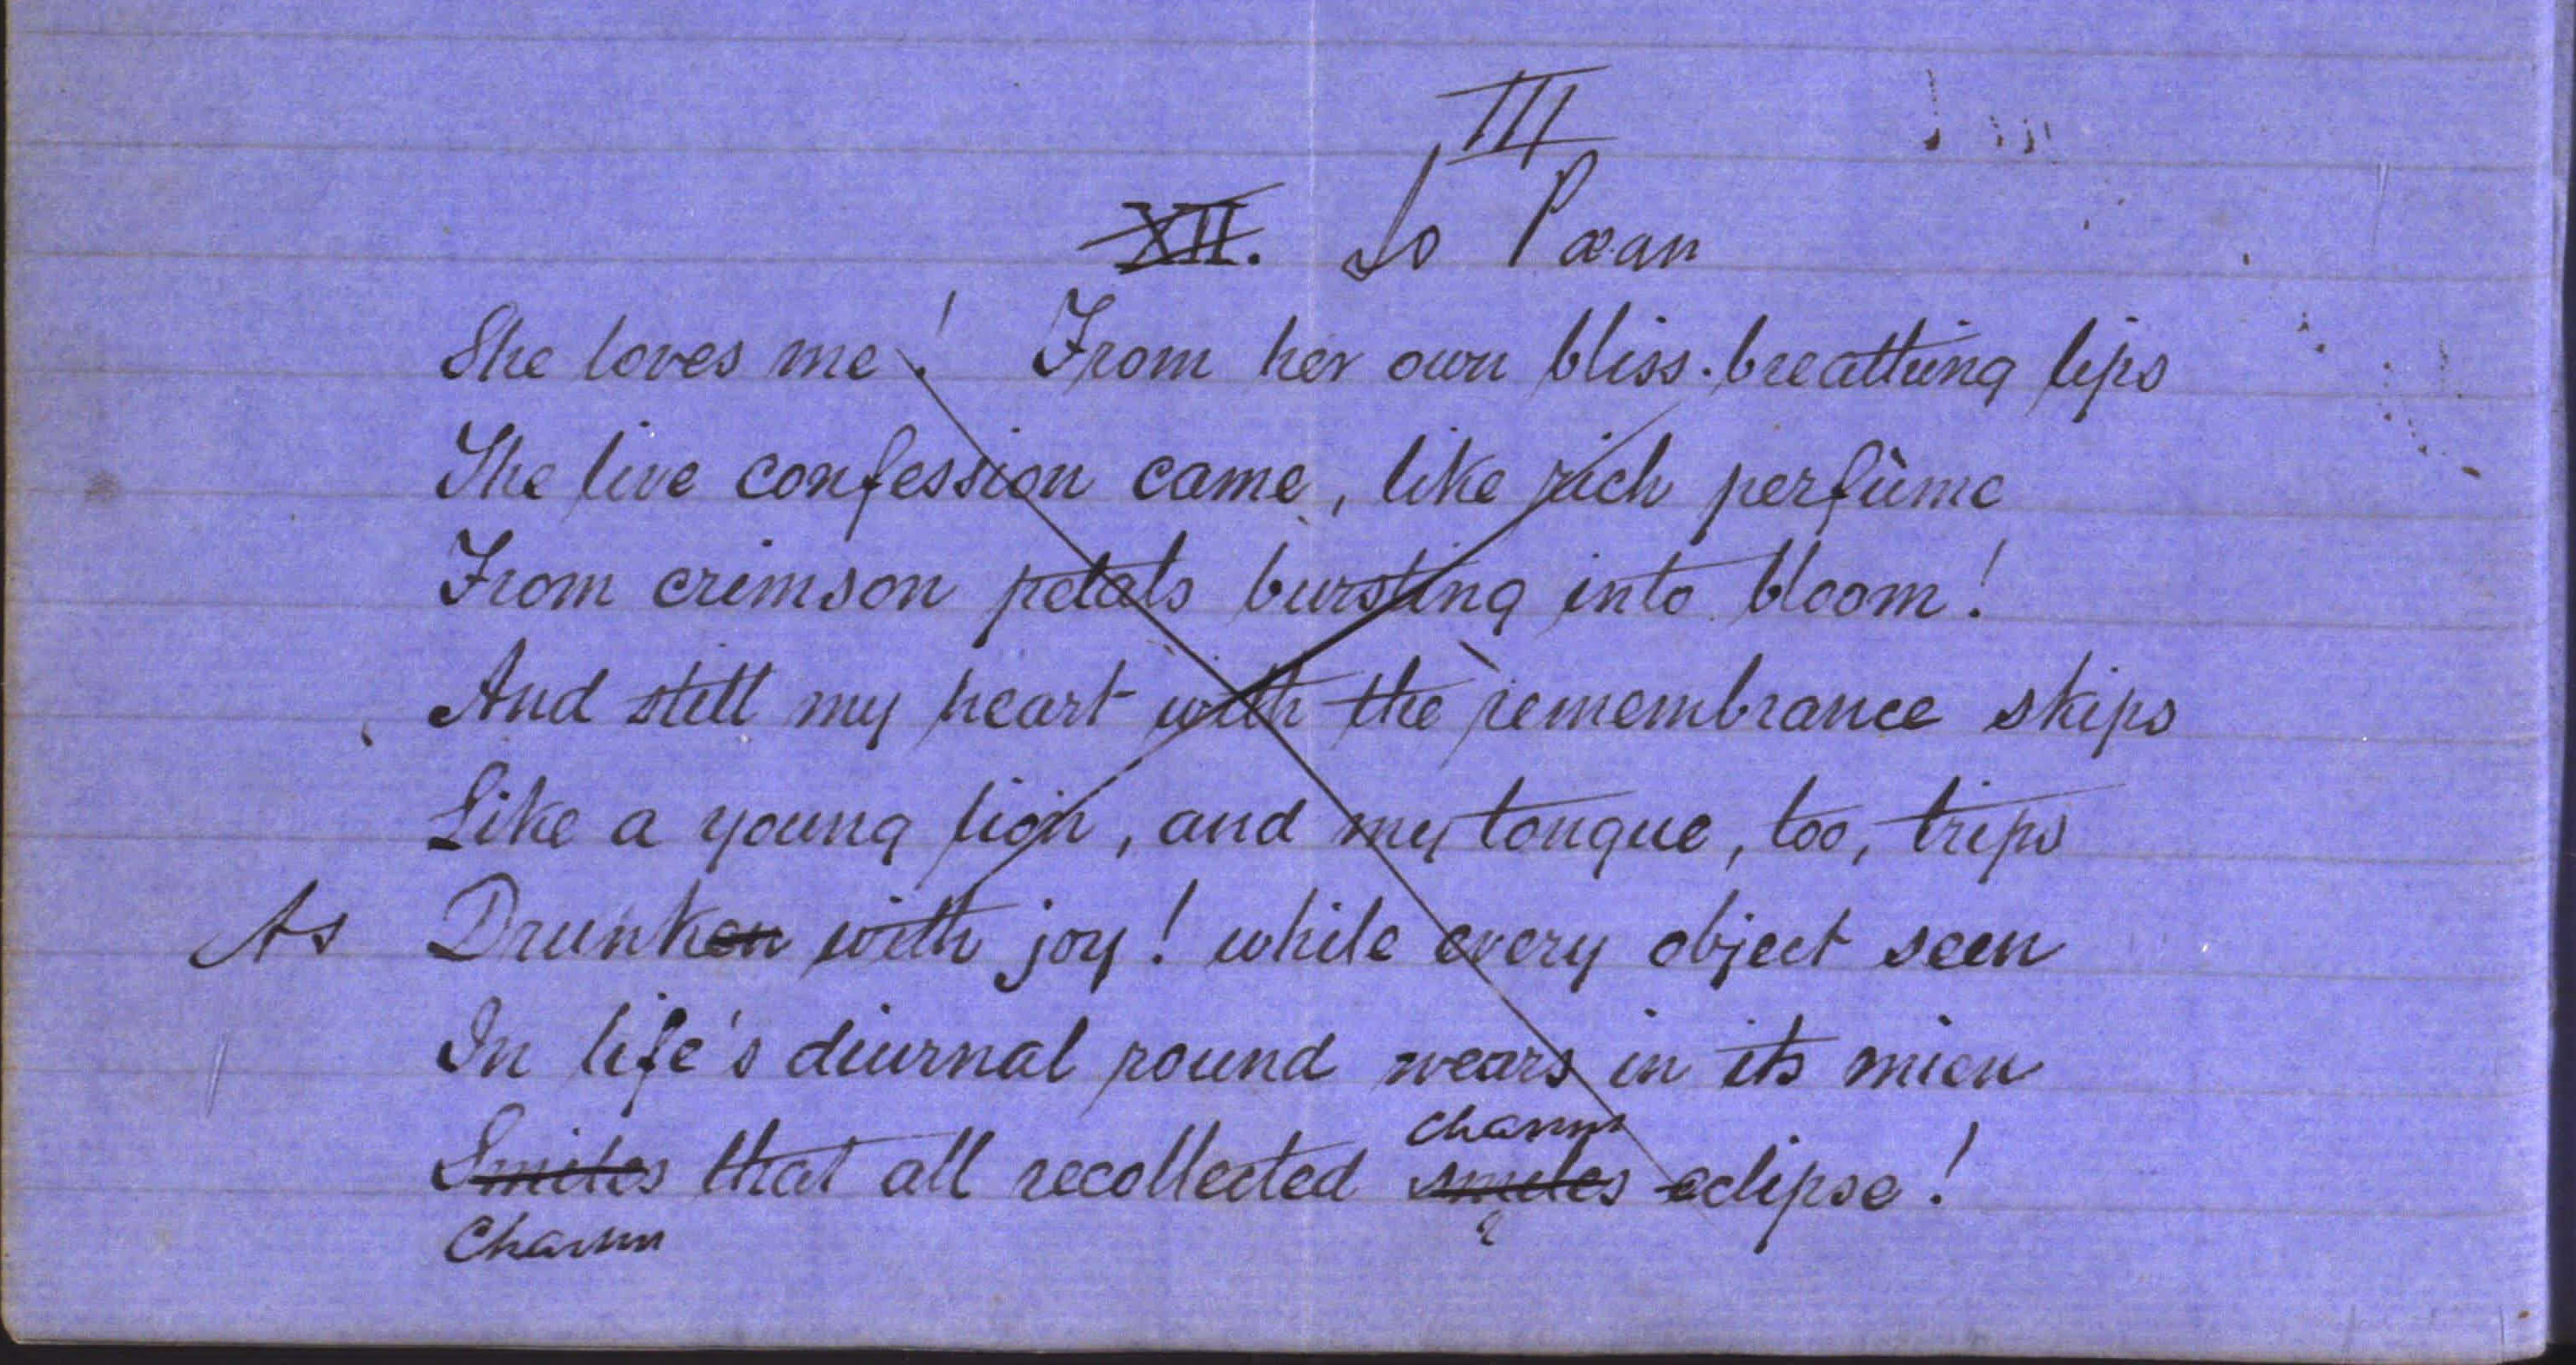 III
XII. Io Pæan
She loves me! From her own bliss-breathing lips
The live confession came, like rich perfùme
From crimson petals bursting into bloom!
And still my heart with the remembrance skips
Like a young lion, and my tongue, too, trips
As Drunken with joy! while every object seen
In life's diurnal round wears in its mien
charms
Smiles that all recollected smiles eclipse!
Charm